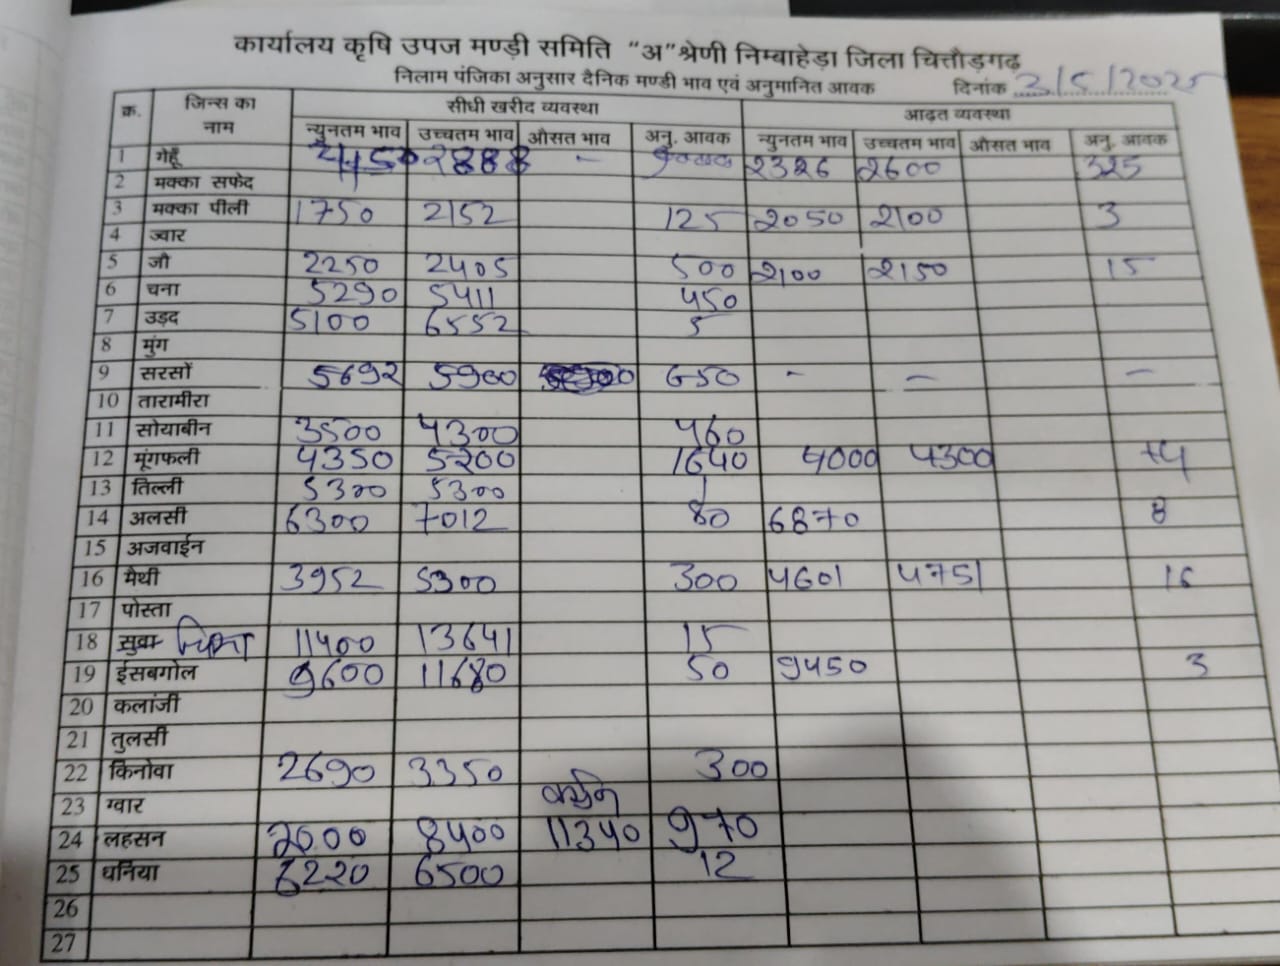 कार्यालय कृषि उपज मण्डी समिति "अ" श्रेणी निम्बाहेड़ा जिला चित्तौड़गढ़
निलाम पंजिका अनुसार दैनिक मण्डी भाव एवं अनुमानित आवक दिनांक 3/5/2025
क्र. जिन्स का नाम सीधी खरीद व्यवस्था आढ़त व्यवस्था
न्युनतम भाव उच्चतम भाव औसत भाव अनु. आवक न्युनतम भाव उच्चतम भाव औसत भाव अनु. आवक
1 गेहूँ 2888 - 2326 2600 325
2 मक्का सफेद
3 मक्का पीली 1750 2152 125 2050 2100 3
4 ज्वार
5 जौ 2250 2405 500 2100 2150 15
6 चना 5290 5411 450
7 उड़द 5100 6552 5
8 मुंग
9 सरसों 5692 5900 650 - - -
10 तारामीरा
11 सोयाबीन 3500 4300 460
12 मूंगफली 4350 5200 1640 4000 4300
13 तिल्ली 5300 5300 1
14 अलसी 6300 7012 80 6870 8
15 अजवाईन
16 मैथी 3952 5300 300 4601 4751 16
17 पोस्ता
18 सुवा 11400 13641 15
19 ईसबगोल 9600 11680 50 9450 3
20 कलांजी
21 तुलसी
22 किनोवा 2690 3350 300
23 ग्वार
24 लहसन 2600 8400 11340 970
25 धनिया 6220 6500 12
26
27